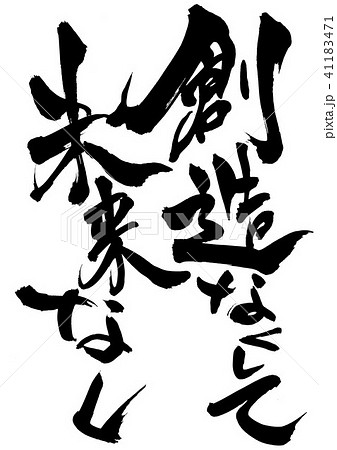 創造なくして
未来なし
PIXTA
pixta.jp - 41183471